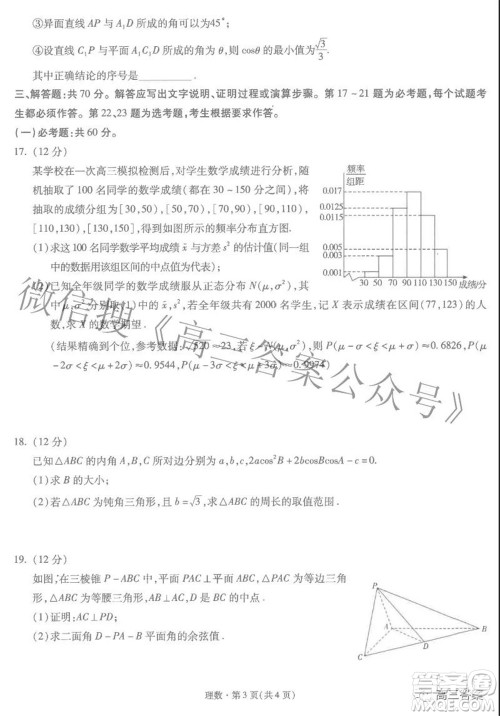 ③异面直线 AP 与 A₁D 所成的角可以为45°；
④设直线 C₁P 与平面 A₁C₁D 所成的角为 θ，则 cosθ 的最小值为√3/3.
其中正确结论的序号是______.
三、解答题：共 70 分。解答应写出文字说明、证明过程或演算步骤。第 17－21 题为必考题，每个试题考
生都必须作答。第 22、23 题为选考题，考生根据要求作答。
(一)必考题：共 60 分。
17. (12 分)
某学校在一次高三模拟检测后，对学生数学成绩进行分析，随
机抽取了 100 名同学的数学成绩(都在 30－150 分之间)，并
将抽查的成绩分组为[30,50)，[50,70)，[70,90)，[90,110)，
[110,130)，[130,150]，得到频率分布直方图.
(1)求这 100 名同学数学平均成绩 x̄ 与方差 s² 的估计值(同一组
中的数据用该组区间的中点值为代表)；
(2)已知全年级同学的数学成绩服从正态分布 N(μ,σ²)，其
中 μ,σ² 分别取(1)中的 x̄,s²，若全年级共有 2000 名学生，记 X 表示成绩在区间(77,123)的人
数，求 X 的数学期望.
(结果精确到个位，参考数据：√520≈23，若 ξ～N(μ,σ²)，则 P(μ－σ<ξ<μ＋σ)≈0.6826,P(μ
－2σ<ξ<μ＋2σ)≈0.9544,P(μ－3σ<ξ<μ＋3σ)≈0.9974)
频率
组距
0.017
0.0125
0.0125
0.005
0.003
0.001
30 50 70 90 110 130 150 成绩/分
18. (12 分)
已知△ABC 的内角 A,B,C 所对边分别为 a,b,c,2acos²B＋2bcosBcosA－c=0.
(1)求 B 的大小；
(2)若△ABC 为钝角三角形，且 b=√3，求△ABC 的周长的取值范围.
19. (12 分)
如图，在三棱锥 P－ABC 中，平面 PAC⊥平面 ABC，△PAC 为等边三角形，
△ABC 为等腰三角形，
(1)证明：AC⊥PD；
(2)求二面角 D－PA－B 平面角的余弦值.
P
A
B
C
D
理数·第 3 页(共 4 页)
微信搜《高三答案公众号》
高三答案